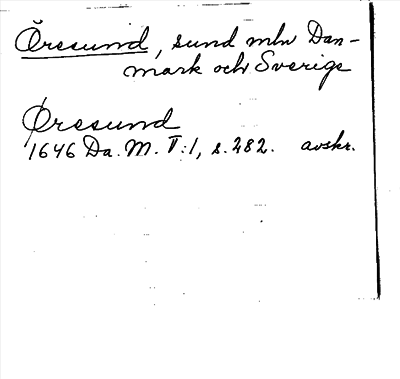 Öresund, sund mln Dan-
mark och Sverige
Øresund
1646 Da. M. V:1, s. 282. avskr.